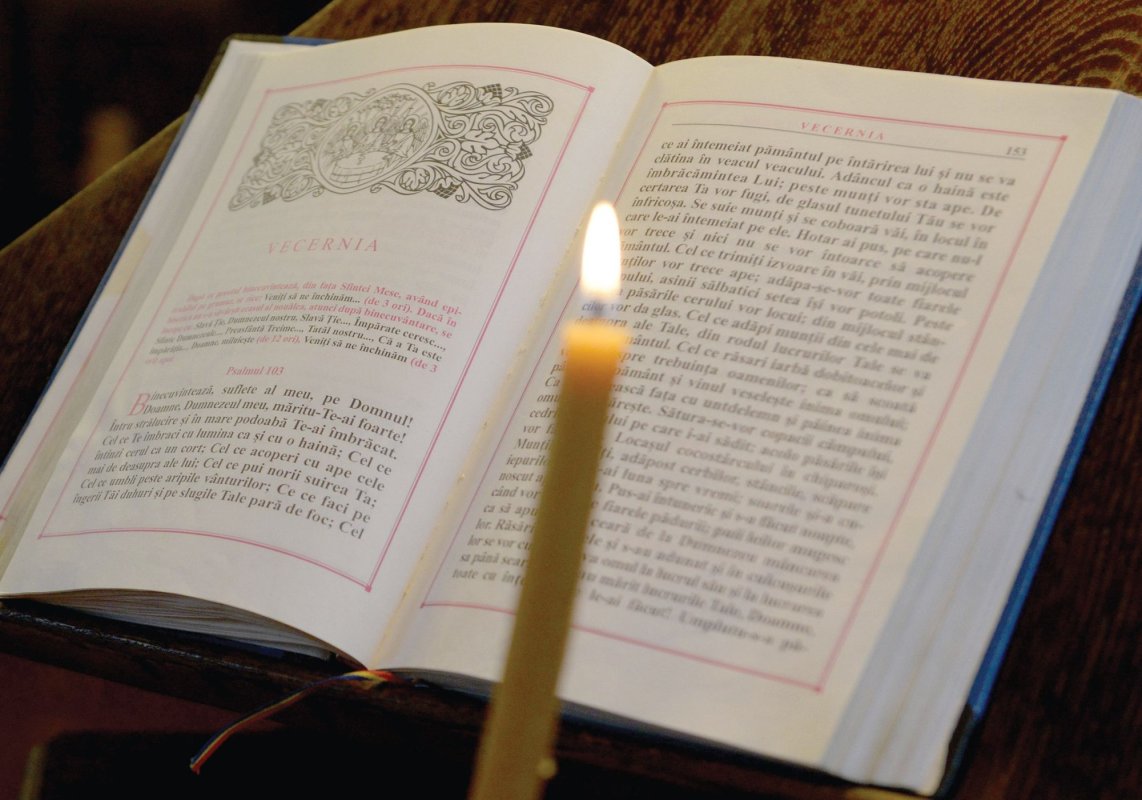 VECERNIA
După ce preotul binecuvintează, din fața Sfintei Mese, având epi-
Dacă în
ceasul al nouălea, atunci după binecuvântare, se
Slavă Ție, Dumnezeul nostru, Slavă Ție..., Împărate ceresc...,
Sfinte Dumnezeule..., Preasfântă Treime..., Tatăl nostru..., Că a Ta este
împărăția..., Doamne, miluiește (de 12 ori), Veniți să ne închinăm (de 3
Psalmul 103
Binecuvintează, suflete al meu, pe Domnul!
Doamne, Dumnezeul meu, măritu-Te-ai foarte!
Întru strălucire și în mare podoabă Te-ai îmbrăcat.
Cel ce Te îmbraci cu lumina ca și cu o haină; Cel ce
întinzi cerul ca un cort; Cel ce acoperi cu ape cele
mai de deasupra ale lui; Cel ce pui norii suirea Ta;
Cel ce umbli peste aripile vânturilor; Ce ce faci pe
îngerii Tăi duhuri și pe slugile Tale pară de foc; Cel
VECERNIA
153
ce ai întemeiat pământul pe întărirea lui și nu se va
clătina în veacul veacului. Adâncul ca o haină este
îmbrăcămintea Lui; peste munți vor sta ape. De
certarea Ta vor fugi, de glasul tunetului Tău se vor
înfricoșa. Se suie munți și se coboară văi, în locul în
care le-ai întemeiat pe ele. Hotar ai pus, pe care nu-l
vor trece și nici nu se vor întoarce să acopere
pământul. Cel ce trimiți izvoare în văi, prin mijlocul
munților vor trece ape; adăpa-se-vor toate fiarele
asinii sălbatici setea își vor potoli. Peste
păsările cerului vor locui; din mijlocul stân-
vor da glas. Cel ce adăpi munții din cele mai de
ale Tale, din rodul lucrurilor Tale se va
pământul. Cel ce răsari iarbă dobitoacelor și
spre trebuința oamenilor; ca să scoată
pământ și vinul veselește inima omului;
Ca fața cu untdelemn și pâinea inima
omu Sătura-se-vor copacii câmpului,
cedri pe care i-ai sădit; acolo păsările își
vor Locașul cocostârcului în chiparoși.
Munți adăpost cerbilor, stâncile, scăpare
iepurilor luna spre vremi; soarele și-a cu-
noscut Pus-ai întuneric și s-a făcut noapte,
când vor fiarele pădurii; puii leilor mugesc
ca să ceară de la Dumnezeu mâncarea
lor. Răsări și s-au adunat și în culcușurile
lor se vor omul la lucrul său și la lucrarea
sa până mărit lucrurile Tale, Doamne,
toate cu le-ai făcut! Umplutu-s-a pă-